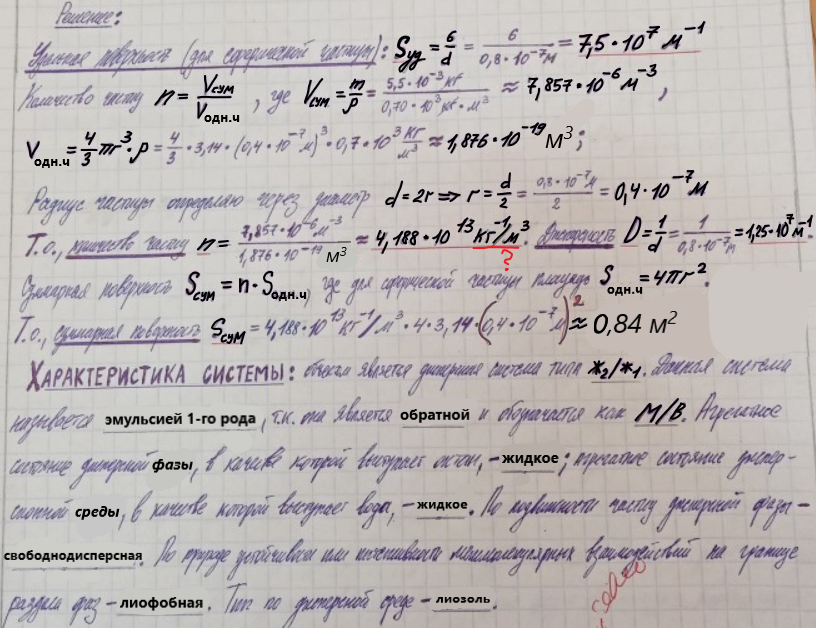 Решение:
Удельная поверхность (для сферической частицы): Sуд = 6/d = 6/0,8·10⁻⁷м = 7,5·10⁷ м⁻¹
Количество частиц n = Vсум/Vодн.ч , где Vсум = m/ρ = 5,5·10⁻³ кг/0,70·10³ кг·м³ ≈ 7,857·10⁻⁶ м⁻³ ,
Vодн.ч = 4/3 πr³·ρ = 4/3 · 3,14 · (0,4·10⁻⁷м)³ · 0,7·10³ кг/м³ ≈ 1,876·10⁻¹⁹ м³;
Радиус частицы определяю через диаметр d = 2r ⇒ r = d/2 = 0,8·10⁻⁷м/2 = 0,4·10⁻⁷ м
Т.о., количество частиц n = 7,857·10⁻⁶м⁻³/1,876·10⁻¹⁹ м³ ≈ 4,188·10¹³ кг⁻¹/м³. Дисперсность D = 1/d = 1/0,8·10⁻⁷м = 1,25·10⁷ м⁻¹.
?
Суммарная поверхность Sсум = n·Sодн.ч, где для сферической частицы площадь Sодн.ч = 4πr².
Т.о., суммарная поверхность Sсум = 4,188·10¹³ кг⁻¹/м³ · 4·3,14·(0,4·10⁻⁷м)² ≈ 0,84 м²
ХАРАКТЕРИСТИКА СИСТЕМЫ: объектом является дисперсная система типа ж₂/ж₁. Данная система
называется эмульсией 1-го рода, т.к. она является обратной и обозначается как М/В. Агрегатное
состояние дисперсной фазы, в качестве которой выступает октан, – жидкое; агрегатное состояние диспер-
сионной среды, в качестве которой выступает воды, – жидкое. По подвижности частиц дисперсной фазы –
свободнодисперсная. По природе устойчивости или интенсивности межмолекулярных взаимодействий на границе
раздела фаз – лиофобная. Тип по дисперсной среде – лиозоль.